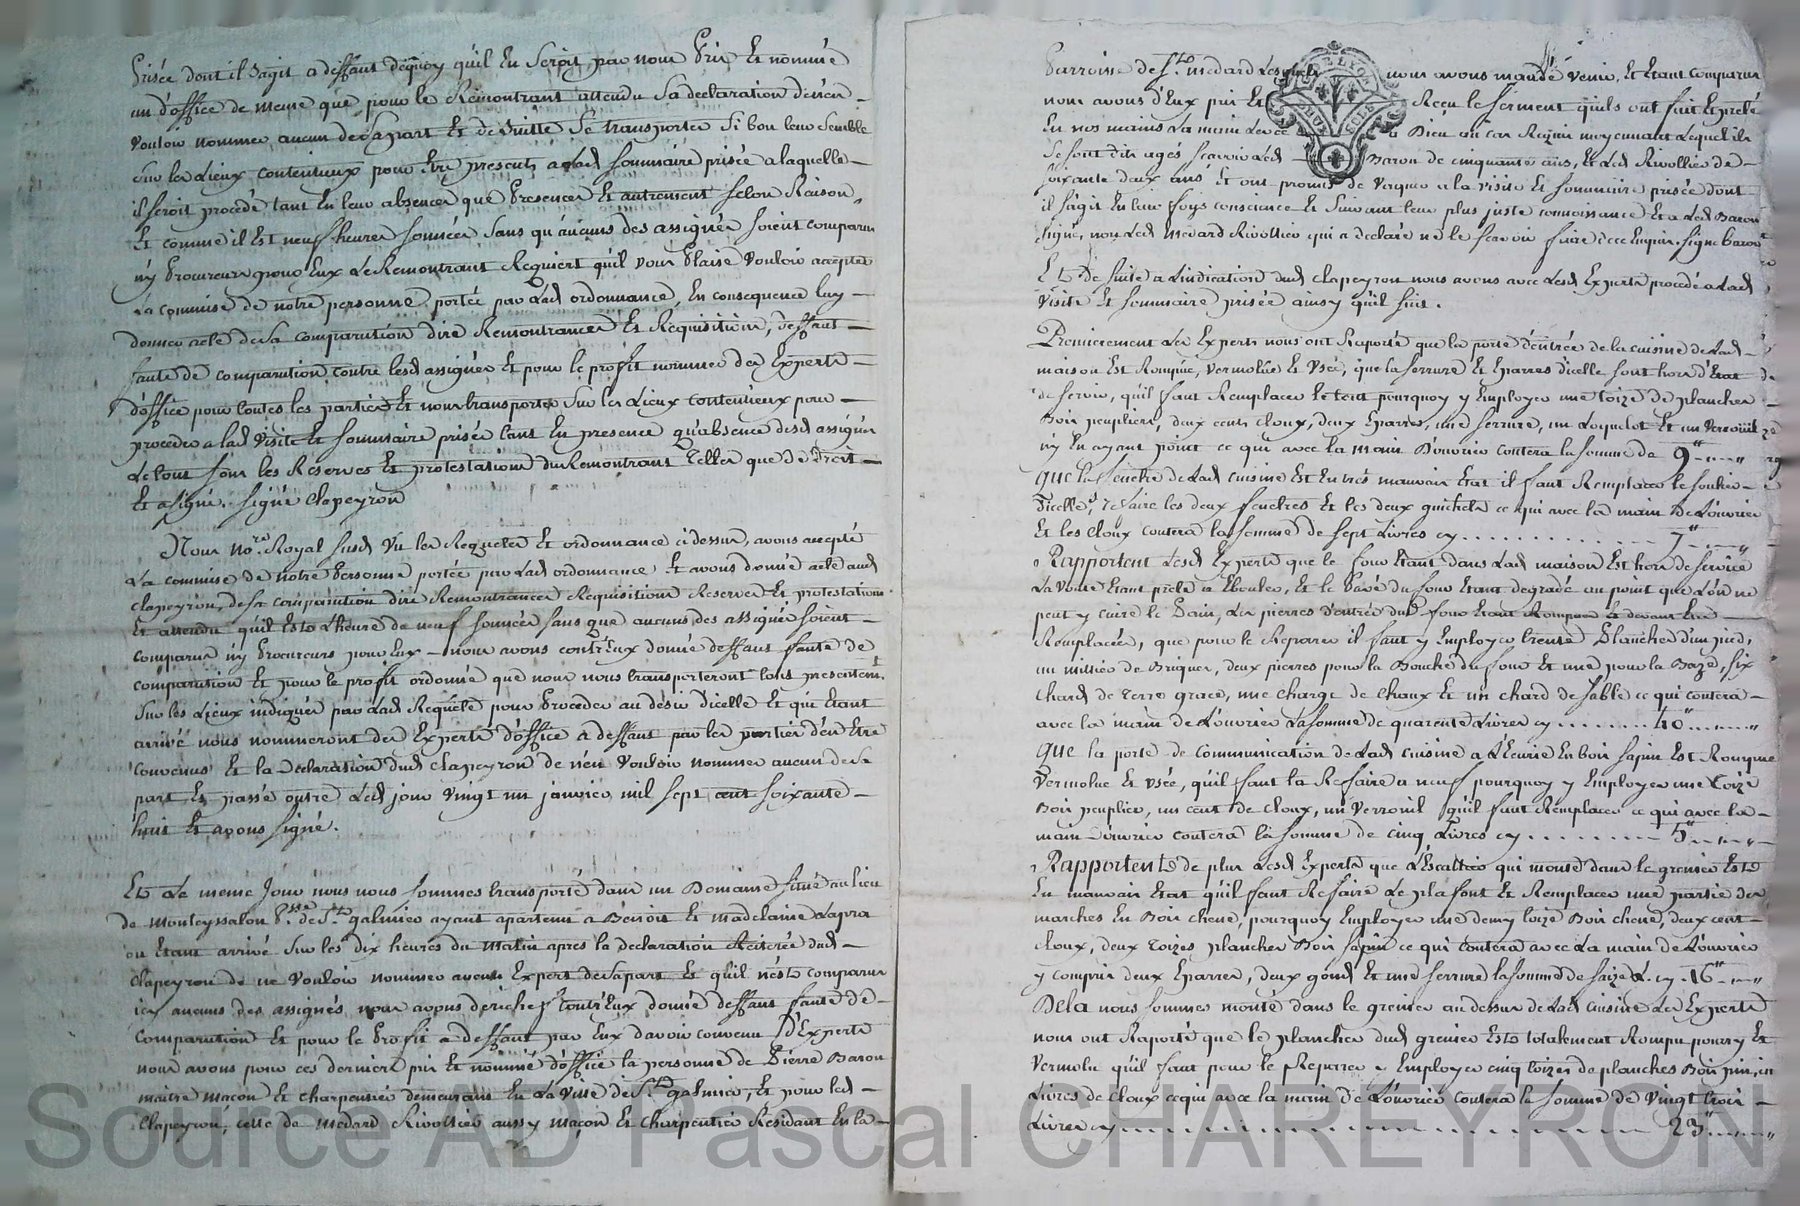 prisée dont il s'agit a deffaut dequoy quil en seroit par nous pris et nommé
un d'office de meme que pour le Remontrant attendu sa declaration de n'en
vouloir nommer aucun de sa part et de suitte se transporter si bon leur semble
sur les lieux contentieux pour être presents a lad sommaire prisée a laquelle
il seroit procédé tant en leur absence que presence et autrement selon Raison
Et comme il est neuf heures sonnées sans qu'aucuns des assignés soient comparus
ny procureurs pour eux le Remontrant Requiert qu'il vous plaise vouloir accepter
la commise de votre personne portée par lad ordonnance, En consequence luy
donner acte de sa comparution dire Remontrances et Requisitions, deffaut
faute de comparution contre lesd assignés et pour le profit nommer des Experts
d'office pour toutes les parties et nous transporter sur les lieux contentieux pour
proceder a lad visite et sommaire prisée tant en presence qu'absence desd assignés
le tout sous les Reserves et protestations du Remontrant telles que de droit
Et a signé. signé Clapeyron
Nous no.re Royal susd vu les Requetes et ordonnance ci dessus, avons accepté
la commise de notre personne portée par lad ordonnance et avons donné acte aud
Clapeyron, de sa comparution dire Remontrances Requisitions Reserves et protestations
Et attendu qu'il est l'heure de neuf sonnées sans que aucuns des assignés soient
comparus ny procureurs pour eux nous avons contr'Eux donné deffaut faute de
comparution et pour le profit ordonné que nous nous transporterons tout presentemt
sur les lieux indiqués par lad Requete pour proceder au désir d'icelle et qui étant
arrivé nous nommerons des Experts d'office a deffaut par les parties d'en Etre
convenus et la declaration dud Clapeyron de n'en vouloir nommer aucun de sa
part et passé outre led jour vingt un janvier mil sept cent soixante
huit Et avons signé.
Et le meme jour nous nous sommes transporté dans un Domaine situé au lieu
de Monteyssalon p.sse de St galmier ayant apartenu a Benoit et madelaine Laprat
ou Etant arrivé sur les dix heures du matin apres la declaration Reiterée dud
Clapeyron de ne vouloir nommer aucun Expert de sa part et qu'il n'est comparu
icy aucuns des assignés nous avons derichef contr'Eux donné deffaut faute de
comparution et pour le profit a deffaut par Eux d'avoir convenu d'Experts
nous avons pour ces derniers pris et nommé d'office la personne de Pierre Baron
maitre maçon et charpentier demeurant en la ville de St galmier, Et pour led
Clapeyron, celle de Médard Rivollier aussy maçon et charpentier Residant en la
Parroisse de St Medard lesquels nous avons mandé venir, et étant comparus
nous avons d'Eux pris et Reçu le serment quils ont fait et preté
En nos mains la main levée a Dieu au cas Requis moyennant lequel ils
se sont dits agés sçavoir led Baron de cinquante ans, et led Rivollier de
soixante deux ans et ont promis de vaquer a la visite et sommaire prisée dont
il s'agit en leur foy conscience et suivant leur plus juste connoissance et a led Baron
signé, non led Medard Rivollier qui a declaré ne le sçavoir faire de ce Enquis. signé Baron
Et de suite a l'indication dud Clapeyron nous avons avec lesd Experts procédé a lad
visite et sommaire prisée ainsy qu'il suit.
Premierement les Experts nous ont Raporté que la porte d'entrée de la cuisine de lad
maison est Rompue, vermolüe et usée, que la serrure et Eparres d'icelle sont hors d'Etat
de servir, qu'il faut Remplacer le tout pourquoy y Employer une toize de plancher
Bois peuplier, deux cents cloux, deux Eparres, une serrure, un loquelot et un verrouil
ny en ayant point ce qui avec la main d'ouvrier coutera la somme de 9"
Que la fenêtre de lad cuisine est en trés mauvais Etat il faut Remplacer le soulier
d'icelle, refaire les deux fenêtres et les deux guichets ce qui avec la main de l'ouvrier
Et les cloux coutera la somme de sept Livres cy . . . . . . 7"
Rapportent lesd Experts que le four étant dans lad maison est hors de service
la voute étant prête a Ebouler, et le pavé du four étant degradé au point que l'on ne
peut y cuire le pain, les pierres d'entrée dud four étant Rompues et devant être
Remplacées, que pour le Reparer il faut y Employer trente planches d'un pied,
un millier de Briques, deux pierres pour la Bouche du four et une pour la Baze, six
chards de terre grace, une charge de chaux et un chard de sable ce qui coutera
avec la main de l'ouvrier la somme de quarente Livres cy . . . . . . 40"
Que la porte de communication de lad cuisine a l'Ecurie en bois sapin est Rompue
vermolue et usée, qu'il faut la Refaire a neuf pourquoy y Employer une toize
Bois peuplier, un cent de cloux, un verrouil qu'il faut Remplacer ce qui avec la
main d'ouvrier coutera la somme de cinq Livres cy . . . . . . 5"
Rapportent de plus lesd Experts que l'Escallier qui monte dans le grenier est
En mauvais Etat qu'il faut Refaire le plafont et Remplacer une partie des
marches En Bois chene, pourquoy Employer une demy toize Bois chene, deux cent
cloux, deux toizes plancher Bois sapin ce qui coutera avec la main de l'ouvrier
y compris deux Eparres, deux gonds et une serrure la somme de saize L. cy 16"
De la nous sommes monté dans le grenier au dessus de lad cuisine les Experts
nous ont Raporté que le plancher dud grenier est totalement Rompu pourry et
vermolu qu'il faut pour le Reparer y Employer cinq toizes de planches Bois pin, six
Livres de cloux ce qui avec la main de l'ouvrier coutera la somme de vingt trois
Livres cy . . . . . . 23"
Source AD Pascal CHAREYRON